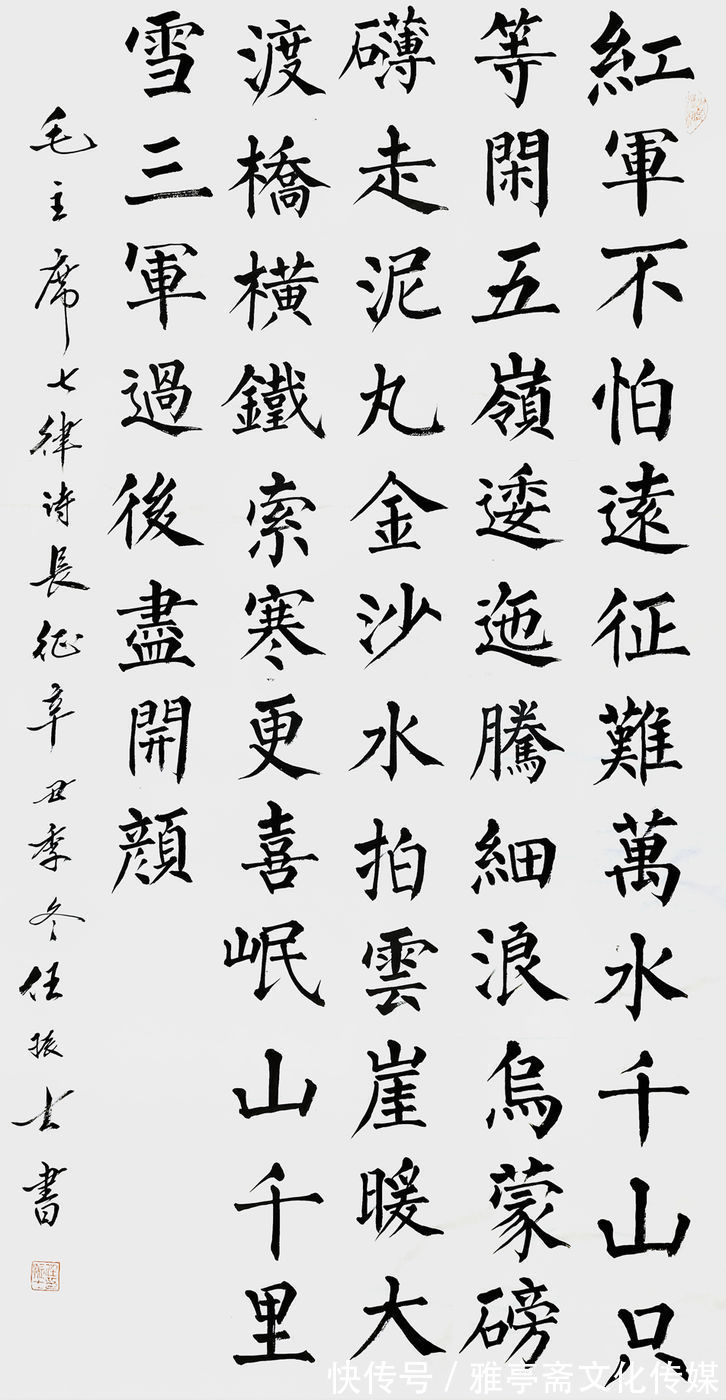 紅軍不怕遠征難萬水千山只
等閑五嶺逶迤騰細浪烏蒙磅
礴走泥丸金沙水拍雲崖暖大
渡橋橫鐵索寒更喜岷山千里
雪三軍過後盡開顔
毛主席七律诗長征辛丑季冬任振士書
快传号/雅亭斋文化传媒